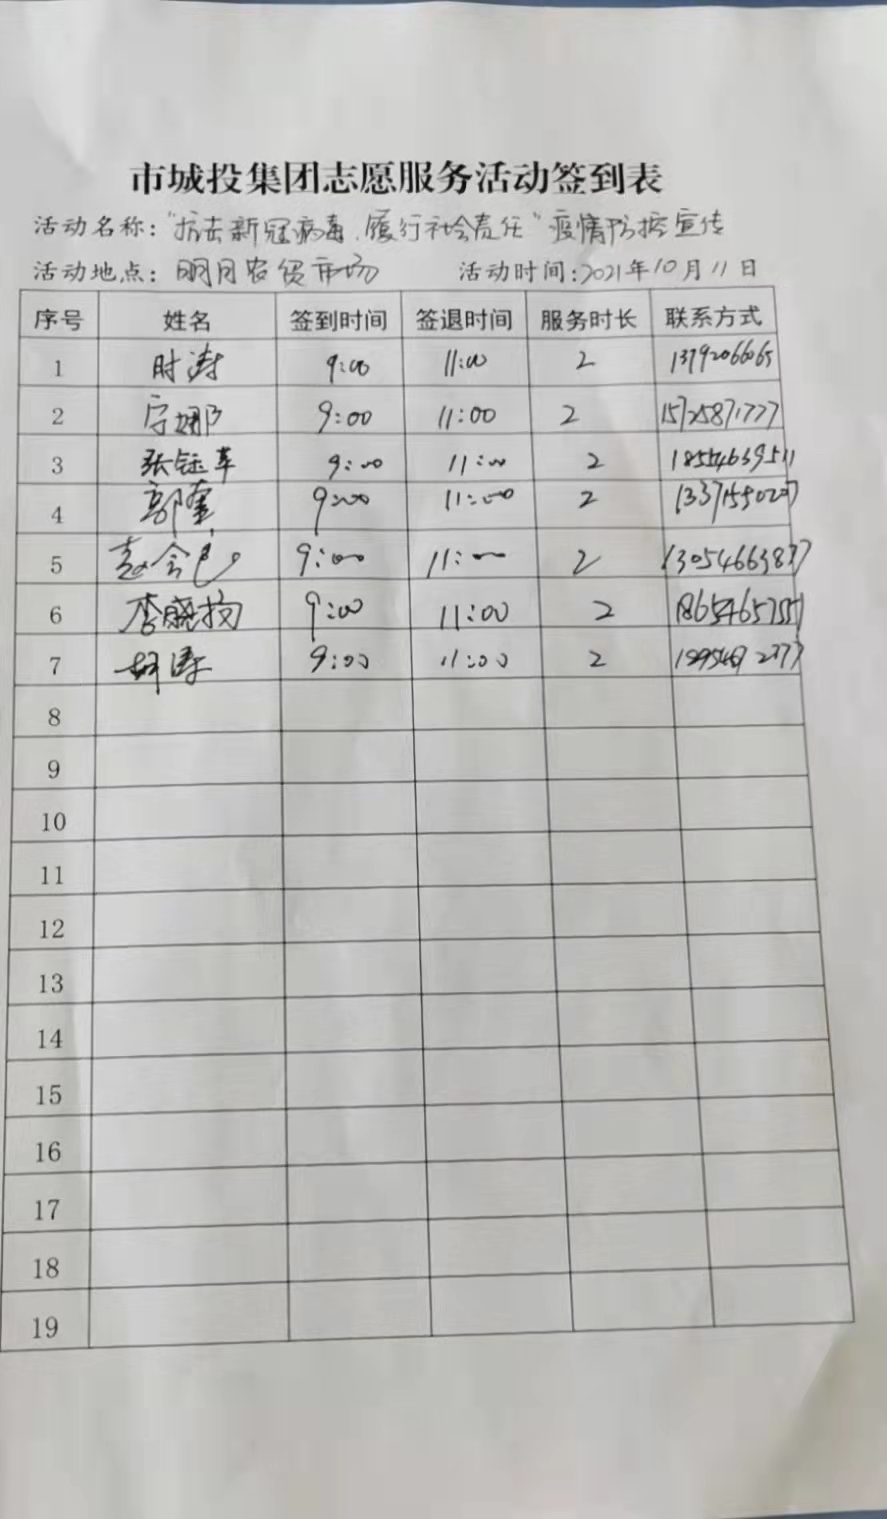 市城投集团志愿服务活动签到表
活动名称："抗击新冠病毒、履行社会责任"疫情防控宣传
活动地点：明月农贸市场 活动时间：2021年10月11日
序号 姓名 签到时间 签退时间 服务时长 联系方式
1 时涛 9:00 11:00 2 13792066065
2 9:00 11:00 2 15725871777
3 9:00 11:00 2 18554639511
4 郭奎 9:00 11:00 2
5 9:00 11:00 2 13054663877
6 9:00 11:00 2
7 胡涛 9:00 11:00 2
8
9
10
11
12
13
14
15
16
17
18
19